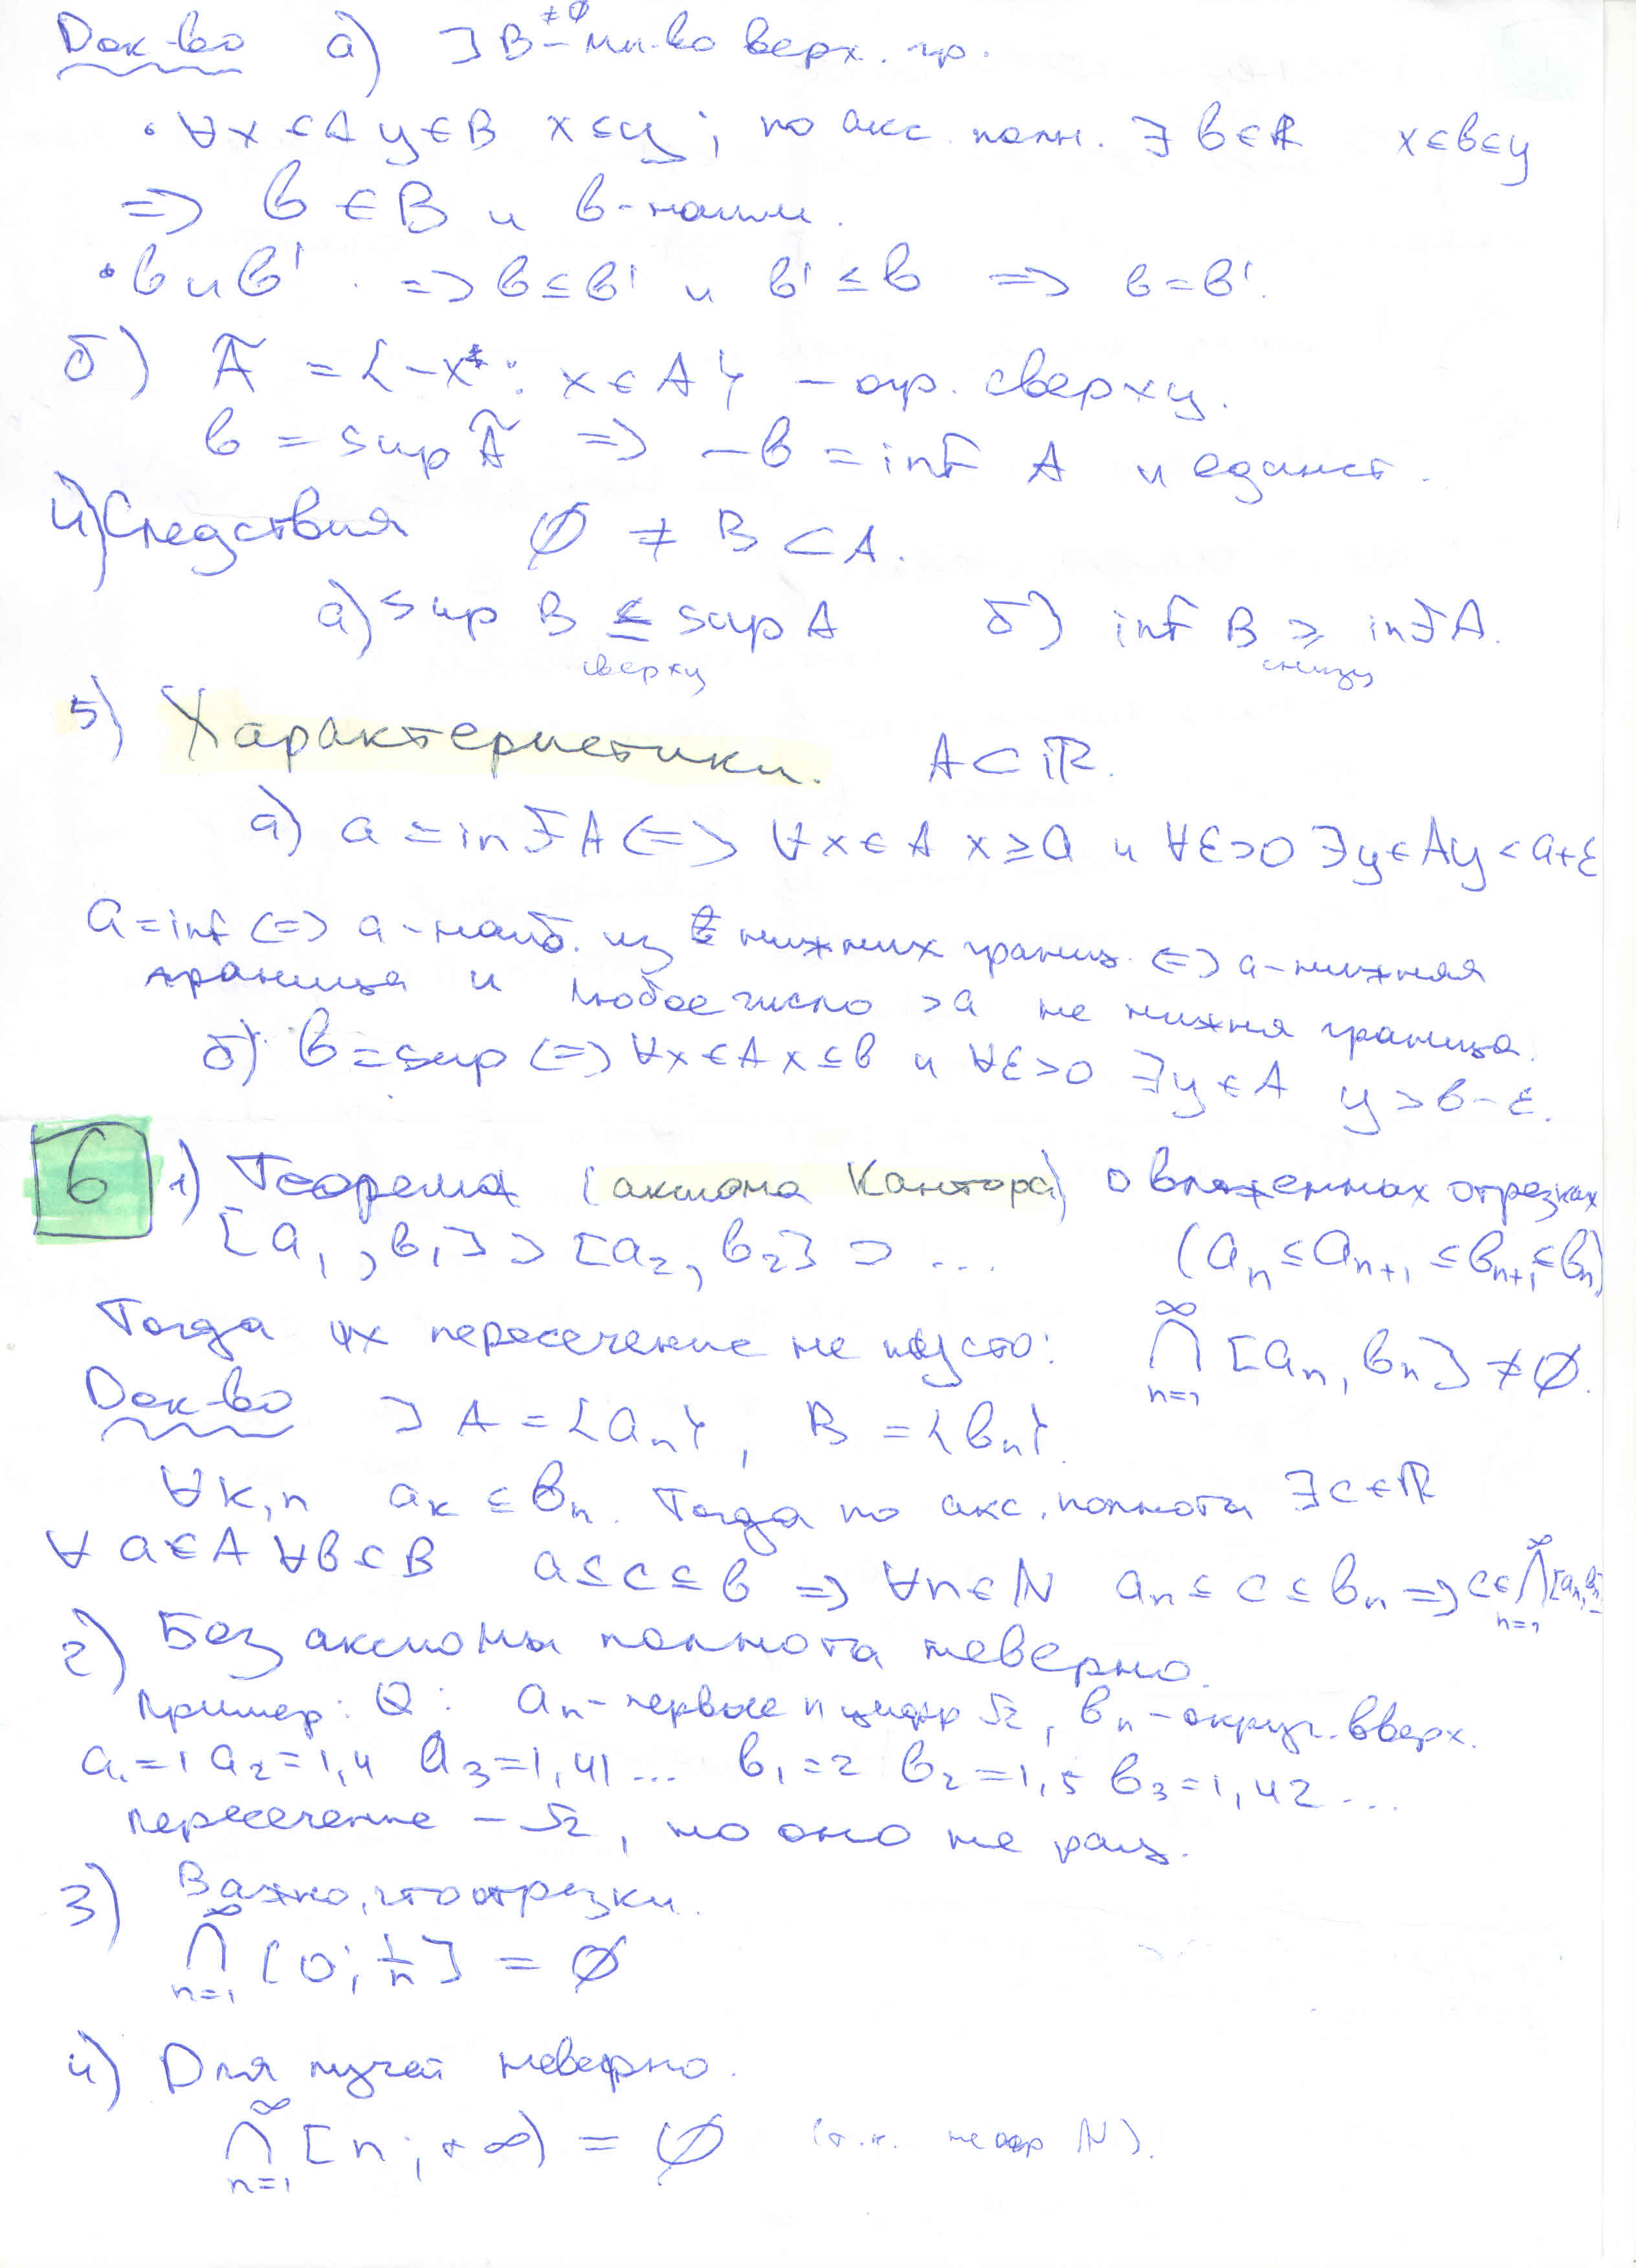 Док-во а) ] B ≠ ∅ – мн-во верх. гр.
• ∀x ∈ A y ∈ B x ≤ y ; по акс. полн. ∃ b ∈ ℝ x ≤ b ≤ y
=> b ∈ B и b – наим.
• b и b' . => b ≤ b' и b' ≤ b => b = b'.
б) Ã = {-x : x ∈ A} – огр. сверху.
b = sup Ã => -b = inf A и единст.
4) Следствия ∅ ≠ B ⊂ A.
а) sup B ≤ sup A б) inf B ≥ inf A.
сверху снизу
5) Характеристики. A ⊂ ℝ.
а) a = inf A <=> ∀x ∈ A x ≥ a и ∀ε>0 ∃y ∈ A y < a+ε
a = inf <=> a – наиб. из нижних границ <=> a – нижняя
граница и любое число > a не нижня граница.
б) b = sup <=> ∀x ∈ A x ≤ b и ∀ε>0 ∃y ∈ A y > b-ε.
6 1) Теорема (аксиома Кантора) о вложенных отрезках
[a₁, b₁] ⊃ [a₂, b₂] ⊃ ... (aₙ ≤ aₙ₊₁ ≤ bₙ₊₁ ≤ bₙ)
Тогда их пересечение не пусто: ∞ ⋂ n=1 [aₙ, bₙ] ≠ ∅.
Док-во ] A = {aₙ}, B = {bₙ}
∀k, n aₖ ≤ bₙ. Тогда по акс. полнота ∃ c ∈ ℝ
∀ a ∈ A ∀b ∈ B a ≤ c ≤ b => ∀n ∈ ℕ aₙ ≤ c ≤ bₙ => c ∈ ∞ ⋂ n=1 [aₙ, bₙ]
2) Без аксиомы полнота неверно.
Пример: Q : aₙ – первые n цифр √2, bₙ – округ. вверх.
a₁ = 1 a₂ = 1,4 a₃ = 1,41 ... b₁ = 2 b₂ = 1,5 b₃ = 1,42 ...
пересечение – √2, но оно не рац.
3) Важно, что отрезки.
∞ ⋂ n=1 (0; 1/n] = ∅
4) Для лучей неверно.
∞ ⋂ n=1 [n; +∞) = ∅ (т.к. не огр ℕ).